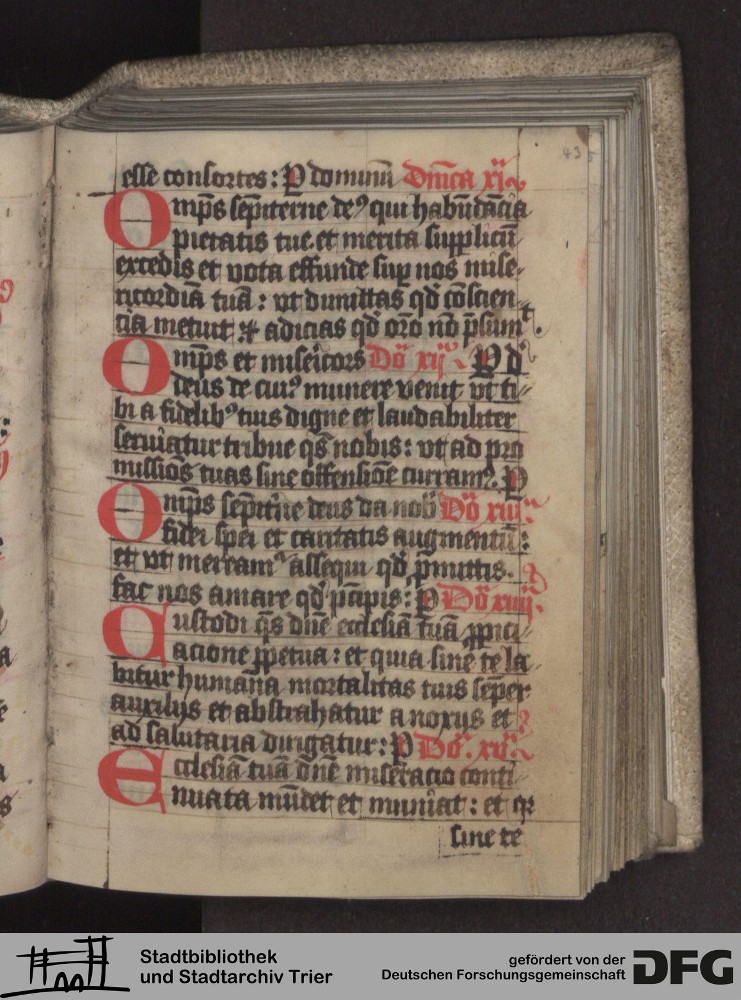 43
esse consortes: P dominū Dn̄ica xj
Omp̄s sēpiterne de⁹ qui habūdācia
pietatis tue et merita supplicū
excedis et vota effunde sup nos mise-
ricordiā tuā: vt dimittas qd̄ cōscien-
cia metuit ⁊ adicias qd̄ or̄o nō p̄sumt.
Omp̄s et misericors Dō xij P d
deus de cui⁹ munere venit vt ti-
bi a fidelib⁹ tuis digne et laudabiliter
seruiatur tribue qs̄ nobis: vt ad pro
missiōs tuas sine offensiōe curram⁹. P
Omp̄s sēpit̄ne deus da nob̄ Dō xiij
fidei spei et caritatis augmentū:
et vt meream̄ assequi qd̄ p̄mittis.
fac nos amare qd̄ p̄cipis: P Dō xiiij.
Custodi qs̄ dn̄e ecclesiā tuā ꝓpici-
acione ꝑpetua: et quia sine te la-
bitur humana mortalitas tuis sēper
auxilijs et abstrahatur a noxijs et
ad salutaria dirigatur: P Dō. xv.
Ecclesiā tuā dn̄e miseracio conti-
nuata mūdet et muniat: et qr
sine te
Stadtbibliothek
und Stadtarchiv Trier
gefördert von der
Deutschen Forschungsgemeinschaft DFG